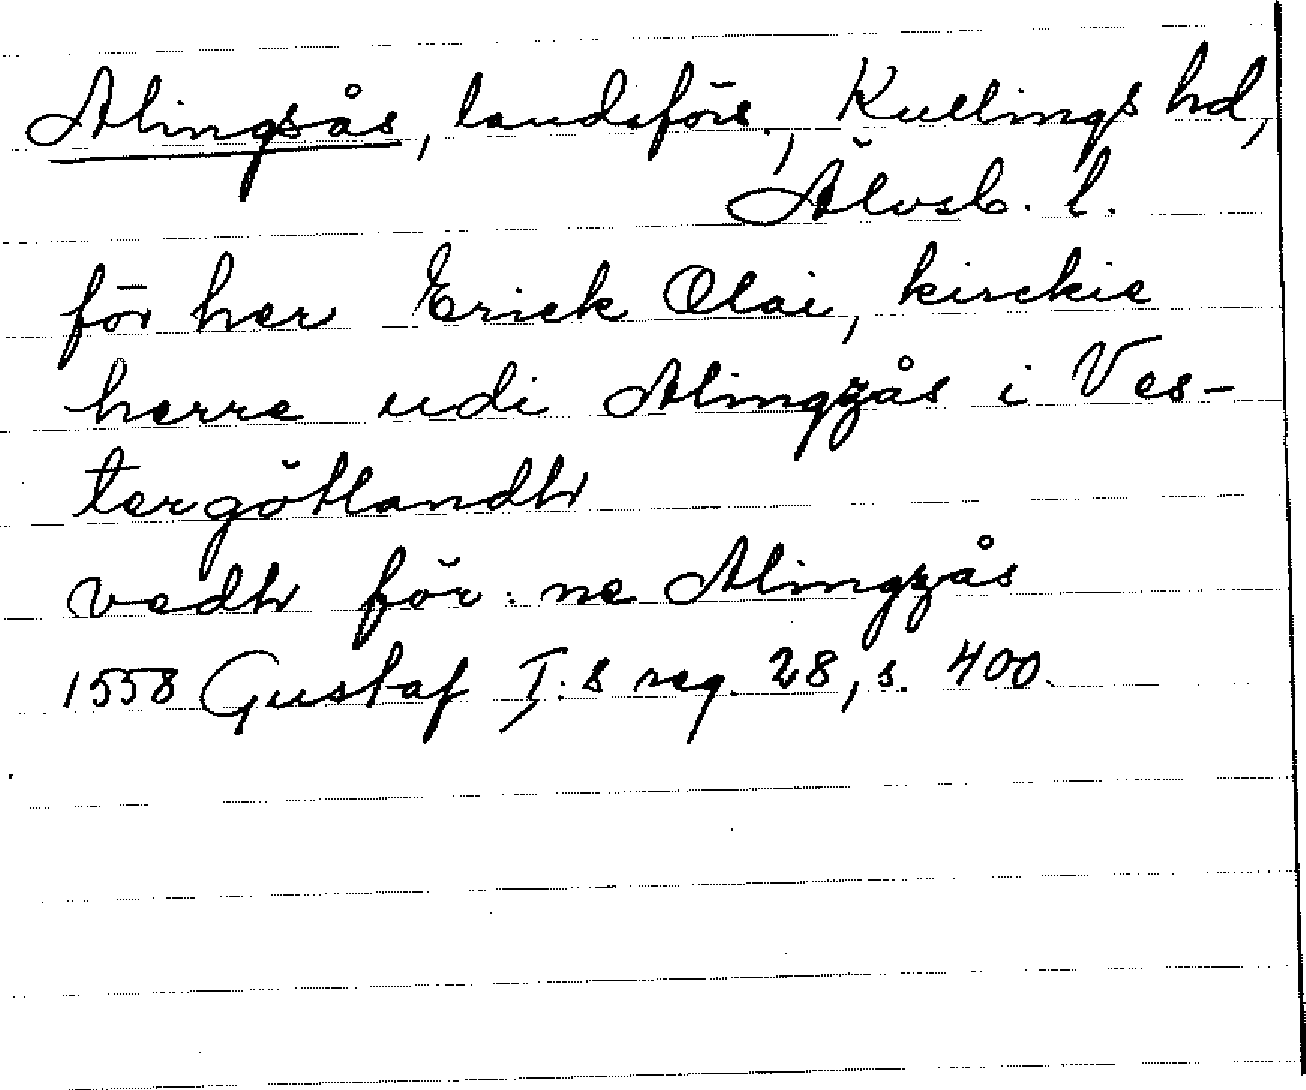 Alingsås, landsförs., Kullings hd,
Älvsb. l.
för her Erick Olai, kirckie
herre udi Alingzås i Ves-
tergötlandh
vedh för:ne Alingzås
1558 Gustaf I:s reg. 28, s. 400.